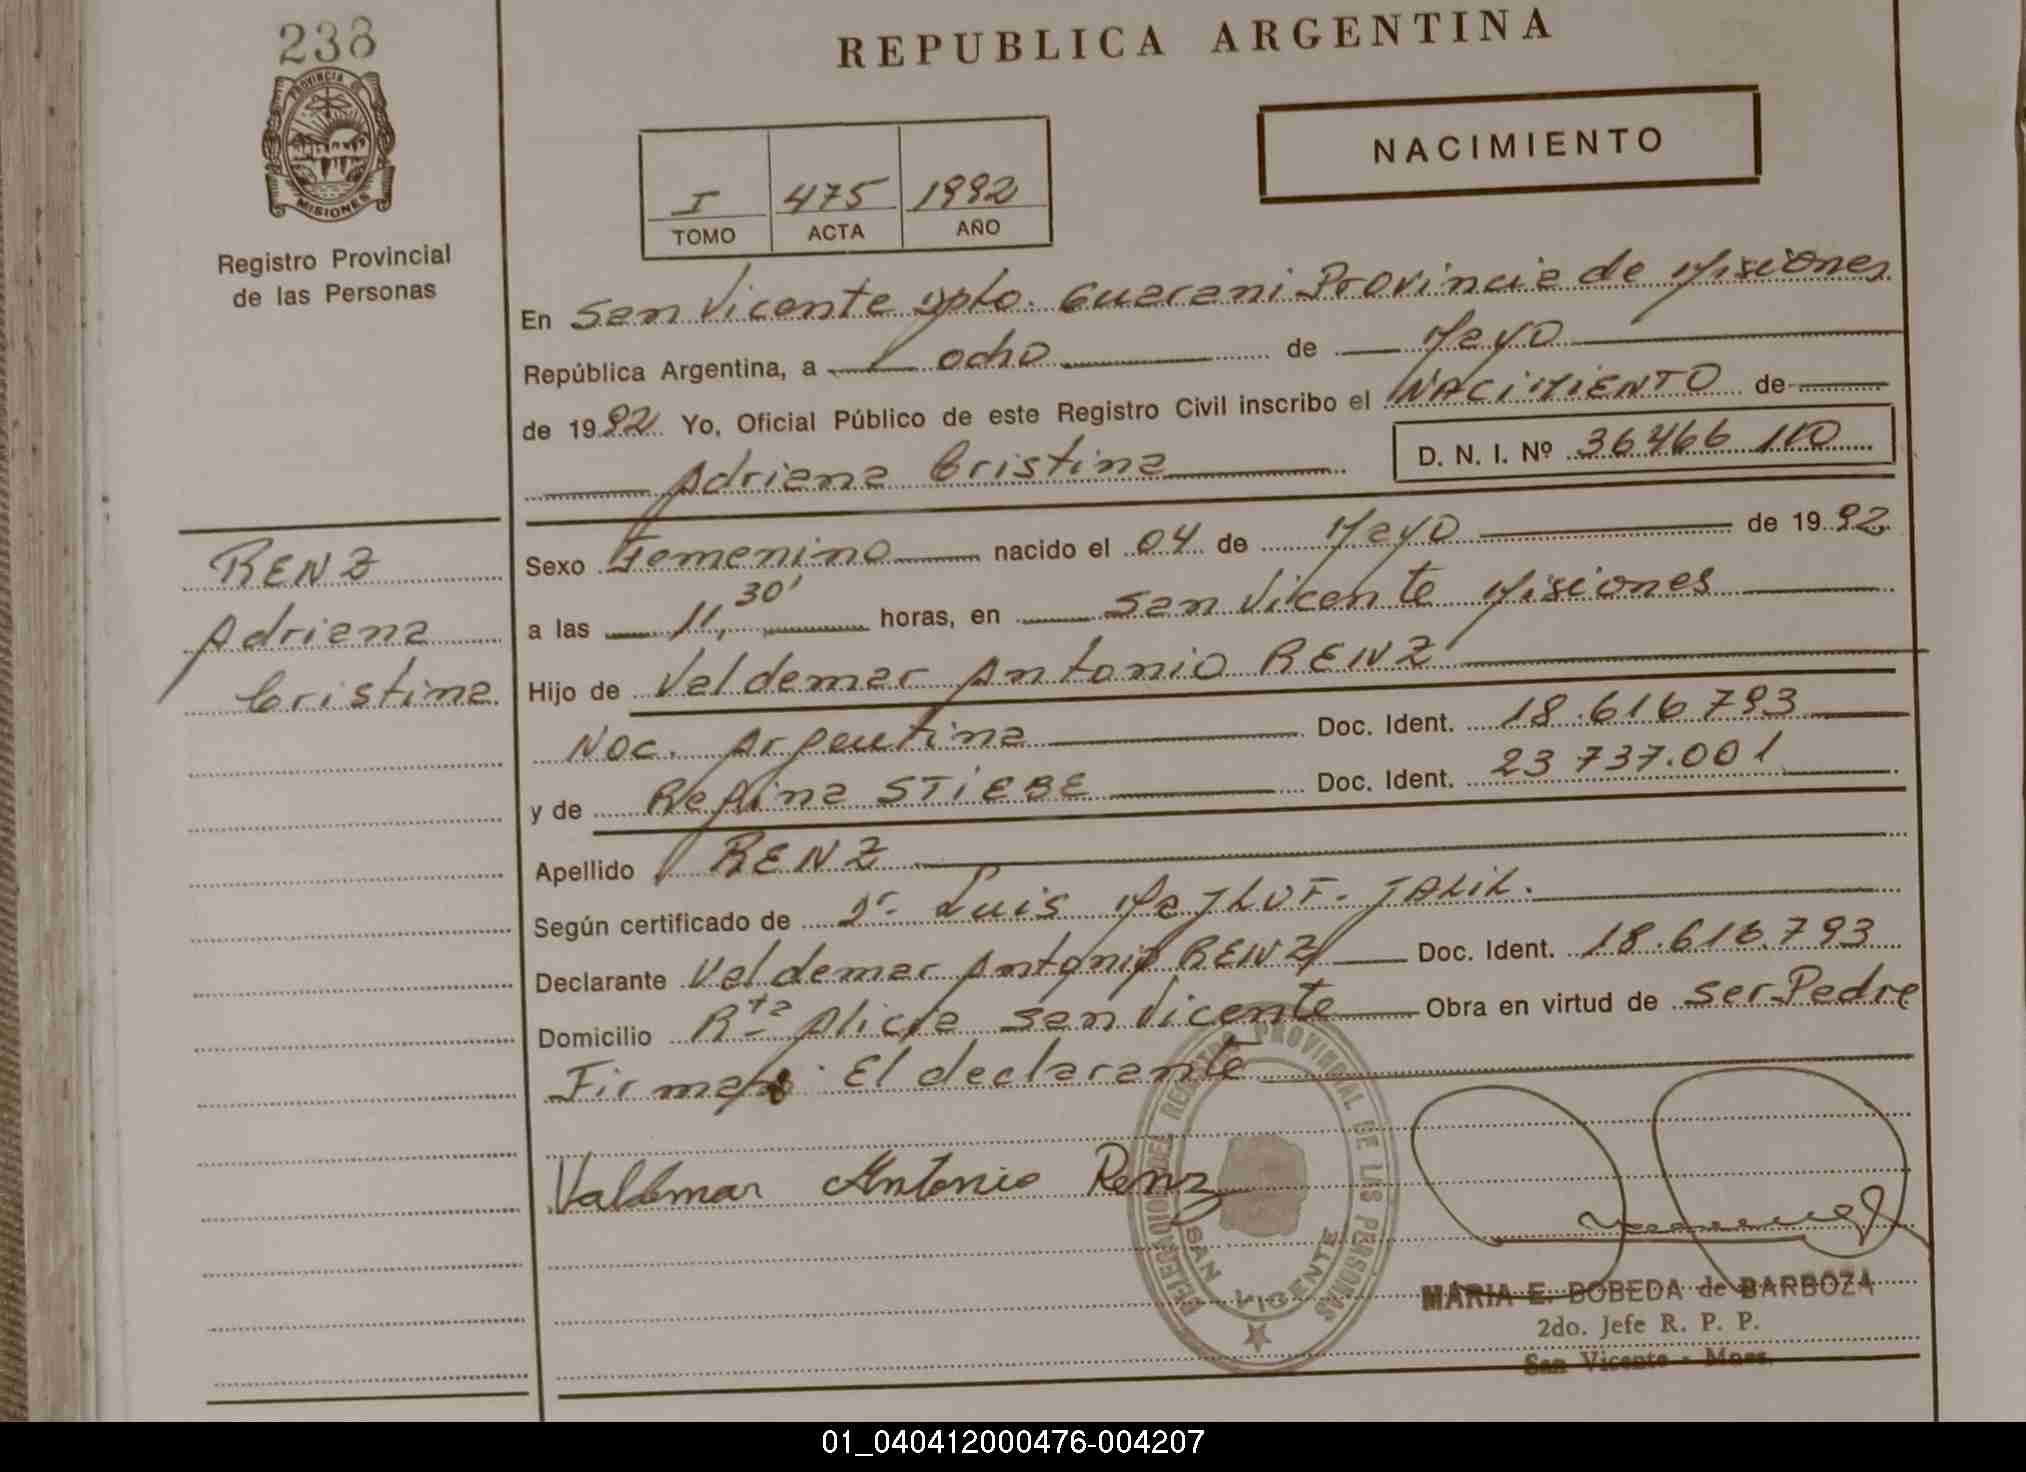 238
PROVINCIA DE
MISIONES
Registro Provincial
de las Personas
REPUBLICA ARGENTINA
NACIMIENTO
I 475 1992
TOMO ACTA AÑO
En San Vicente Dpto. Guarani Provincia de Misiones
República Argentina, a ocho de Mayo
de 1992 Yo, Oficial Público de este Registro Civil inscribo el NACIMIENTO de
Adriana Cristina D. N. I. Nº 36466 110
RENZ
Adriana
Cristina
Sexo Femenino nacido el 04 de Mayo de 1992
a las 11,30' horas, en San Vicente Misiones
Hijo de Valdemar Antonio RENZ
Nac. Argentina Doc. Ident. 18.616793
y de Regina STIEBE Doc. Ident. 23 737.001
Apellido RENZ
Según certificado de Dr. Luis MaJLUF. JALIL.
Declarante Valdemar Antonio RENZ Doc. Ident. 18.616.793
Domicilio Rta Alicia San Vicente Obra en virtud de ser Padre
Firman: El declarante
Valdemar Antonio Renz
DELEGACION DEL REGISTRO PROVINCIAL DE LAS PERSONAS
SAN VICENTE
MARIA E. BOBEDA de BARBOZA
2do. Jefe R. P. P.
San Vicente - Mnes.
01_040412000476-004207